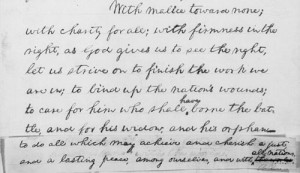 With malice toward none;
with charity for all; with firmness in the
right, as God gives us to see the right,
let us strive on to finish the work we
are in; to bind up the nation's wounds;
to care for him who shall have borne the bat-
tle, and for his widow, and his orphan
to do all which may achieve and cherish a just,
and a lasting peace, among ourselves, and with all nations